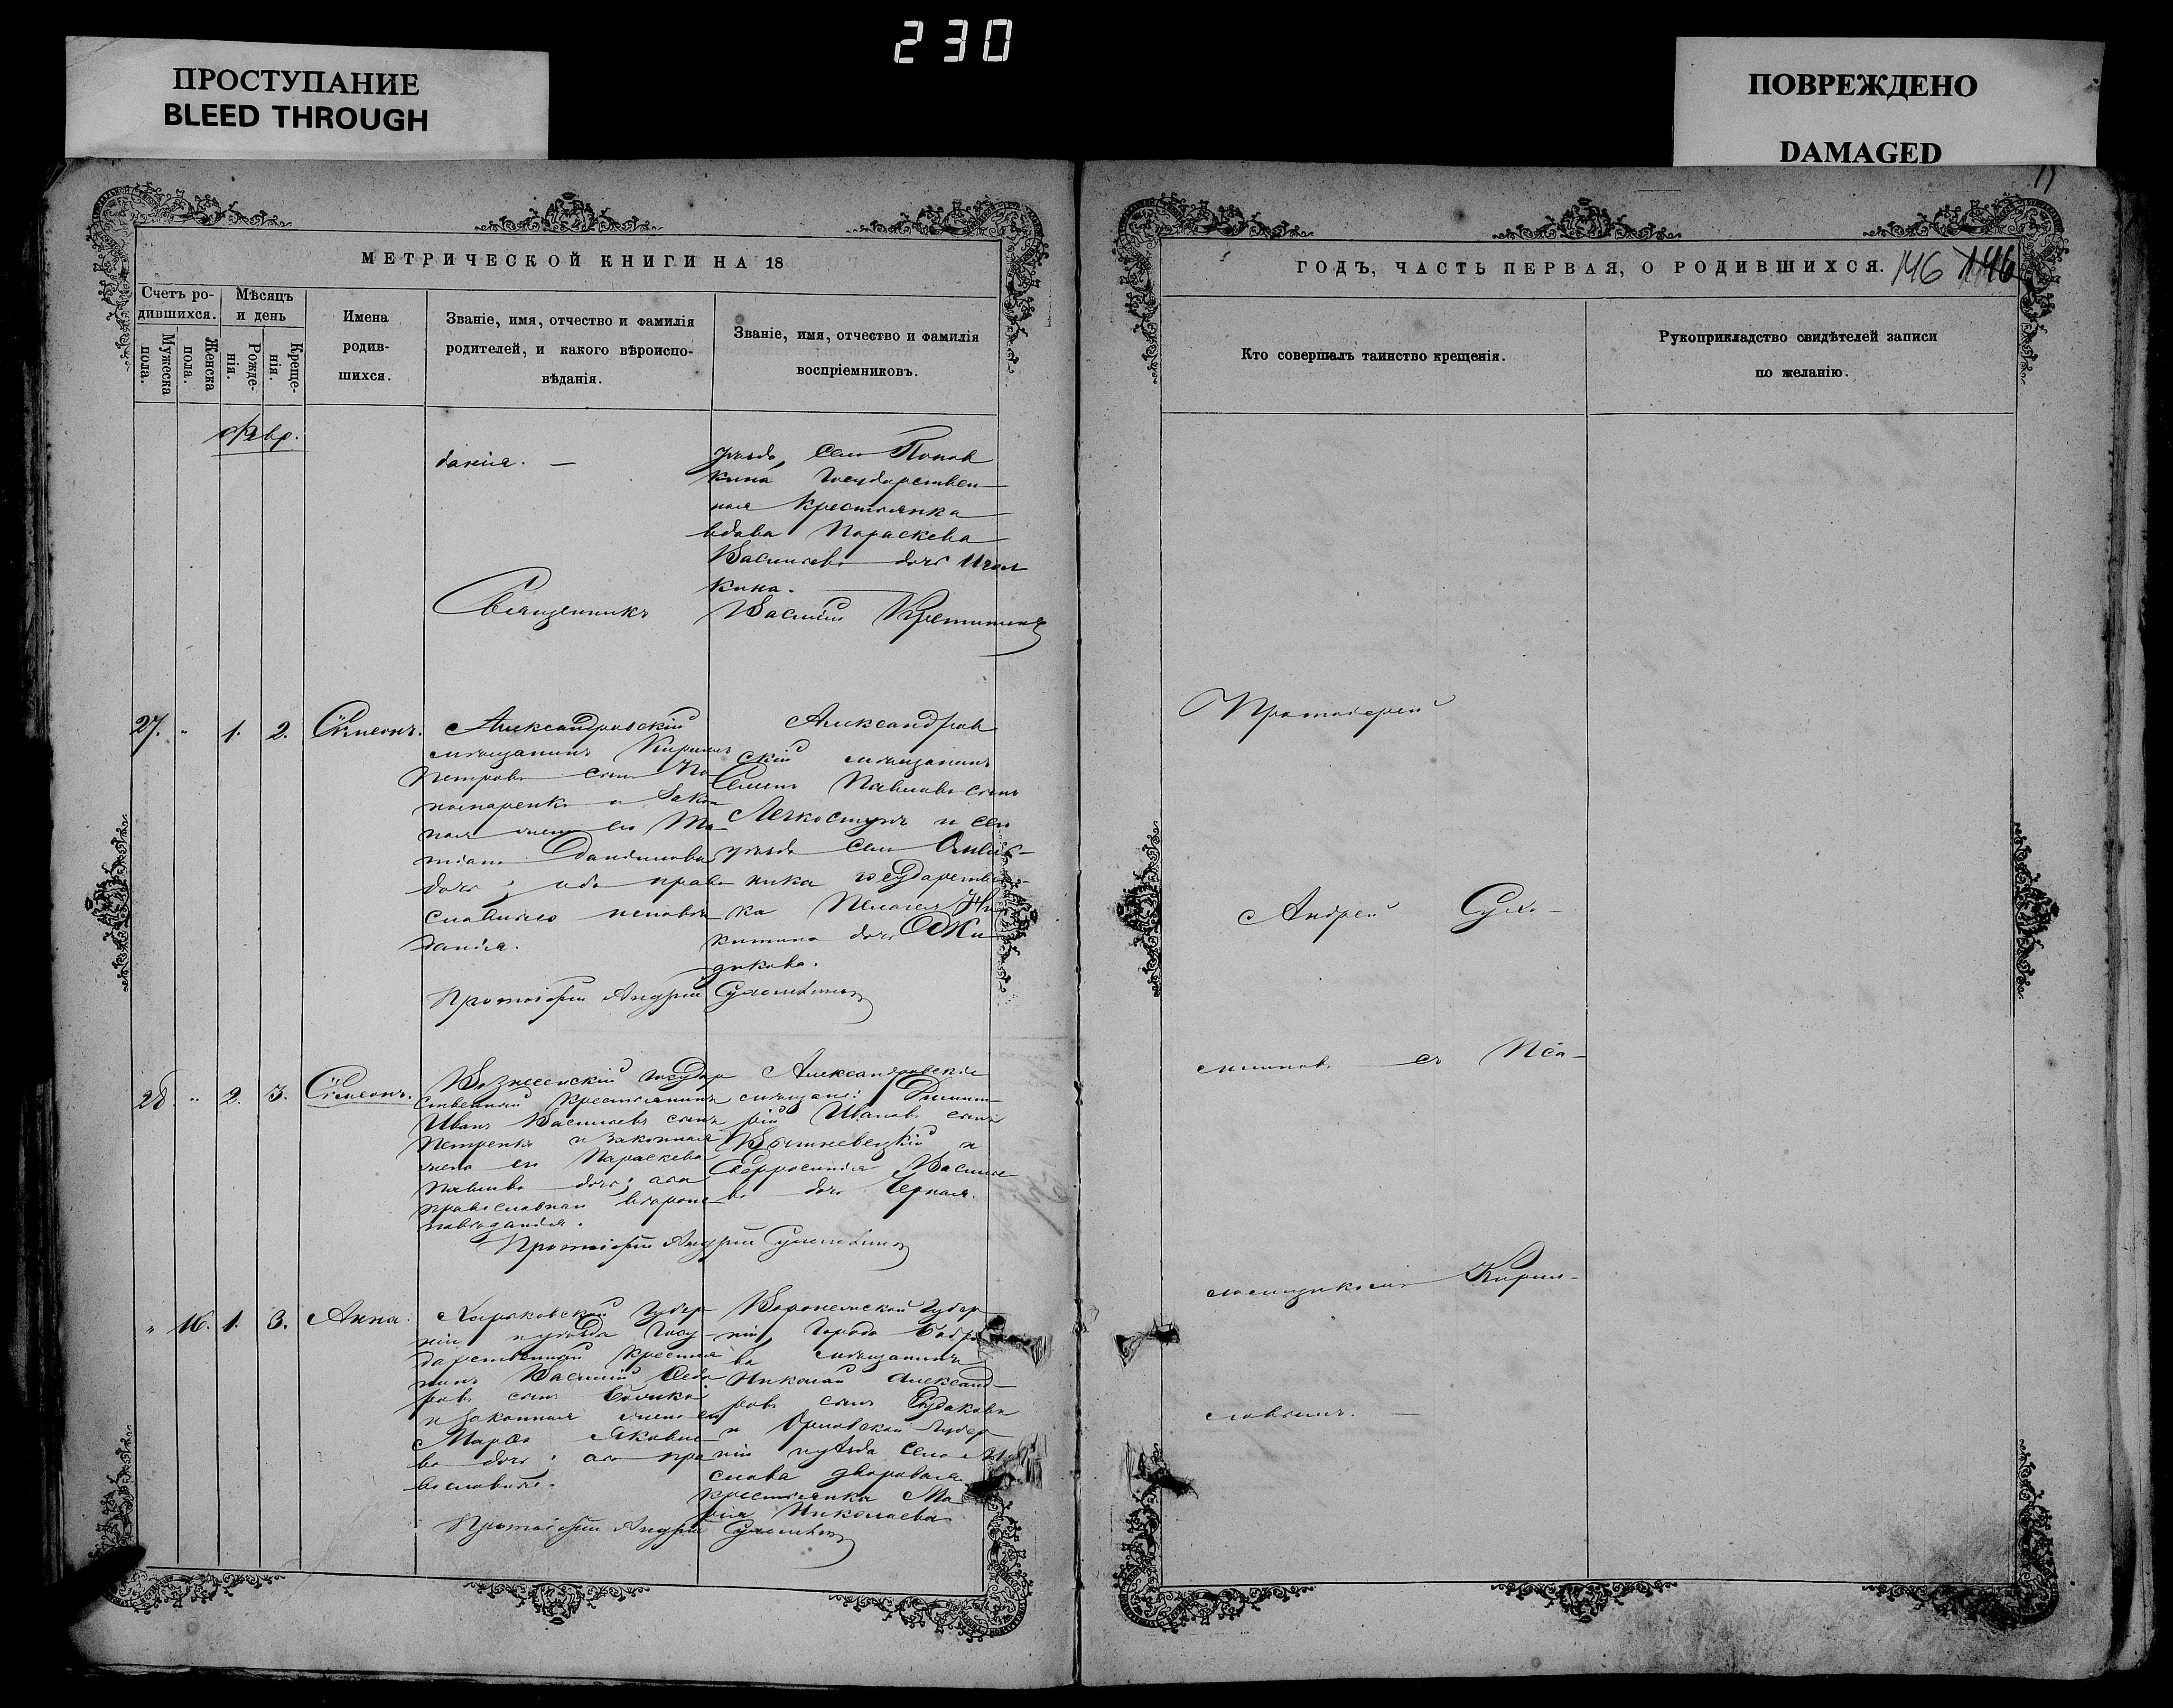 230
ПРОСТУПАНИЕ
BLEED THROUGH
ПОВРЕЖДЕНО
DAMAGED
МЕТРИЧЕСКОЙ КНИГИ НА 18
Счетъ ро-
дившихся.
Мужеска
пола.
Женска
пола.
Мѣсяцъ
и день
Рожде-
нія.
Креще-
нія.
Имена
родив-
шихся.
Званіе, имя, отчество и фамилія
родителей, и какого вѣроиспо-
вѣданія.
Званіе, имя, отчество и фамилія
воспріемниковъ.
данія. —
уѣзда, села Попов
кина Государствен-
ная крестьянка
вдова Параскева
Васильева дочь
кина.
Священникъ Василій
27. " 1. 2. Сѵмеонъ.
Александровскій
мѣщанинъ Кирилъ
Петровъ сынъ По
и закон
ная жена его Та
тіана
дочь; оба право
славнаго исповѣ
данія.
Александров
скій мѣщанинъ
Семенъ Павловъ сынъ
Легкоступъ и сего
уѣзда села
ника государствен-
ка Пелагея Ни
китина дочь
Протоіерей Андрей
28. " 2. 3. Сѵмеонъ.
Вознесенскій государ
ственный крестьянинъ
Иванъ Васильевъ сынъ
Петренко и законная
жена его Параскева
Павлова дочь; оба
православнаго вѣроис
повѣданія.
Александровскіе
мѣщане: Димит
рій Ивановъ сынъ
Вышневецкій и
Евфросинія Василье
ва дочь Черная.
Протоіерей Андрей
" 16. 1. 3. Анна.
Харьковской Губер
ніи и уѣзда Госу-
дарственный крестья
нинъ Василій Ѳедо
ровъ сынъ
и законная жена его
Марѳа Яковле
ва дочь; оба пра
вославные.
Воронежской Губер
ніи, города Бобро
ва мѣщанинъ
Николай Александ
ровъ сынъ Судаковъ
и Орловской Губер
ніи и уѣзда села
слова дворовая
крестьянка Ма
рія Николаева
Протоіерей Андрей
ГОДЪ, ЧАСТЬ ПЕРВАЯ, О РОДИВШИХСЯ. 146 146
Кто совершалъ таинство крещенія.
Рукоприкладство свидѣтелей записи
по желанію.
Протоіерей
Андрей
съ Пса-
ломщикомъ Кирил-
ловымъ. —